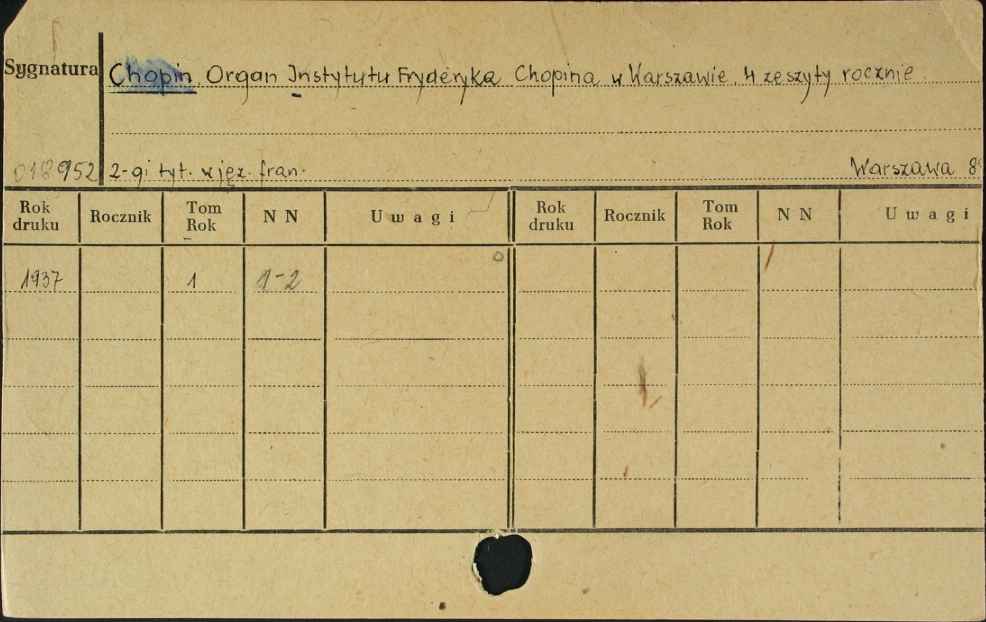 Sygnatura Chopin. Organ Instytutu Fryderyka Chopina w Warszawie. 4 zeszyty rocznie.
018952 2-gi tyt. w jęz. fran. Warszawa 8°
Rok druku Rocznik Tom Rok NN Uwagi Rok druku Rocznik Tom Rok NN Uwagi
1937 1 1-2